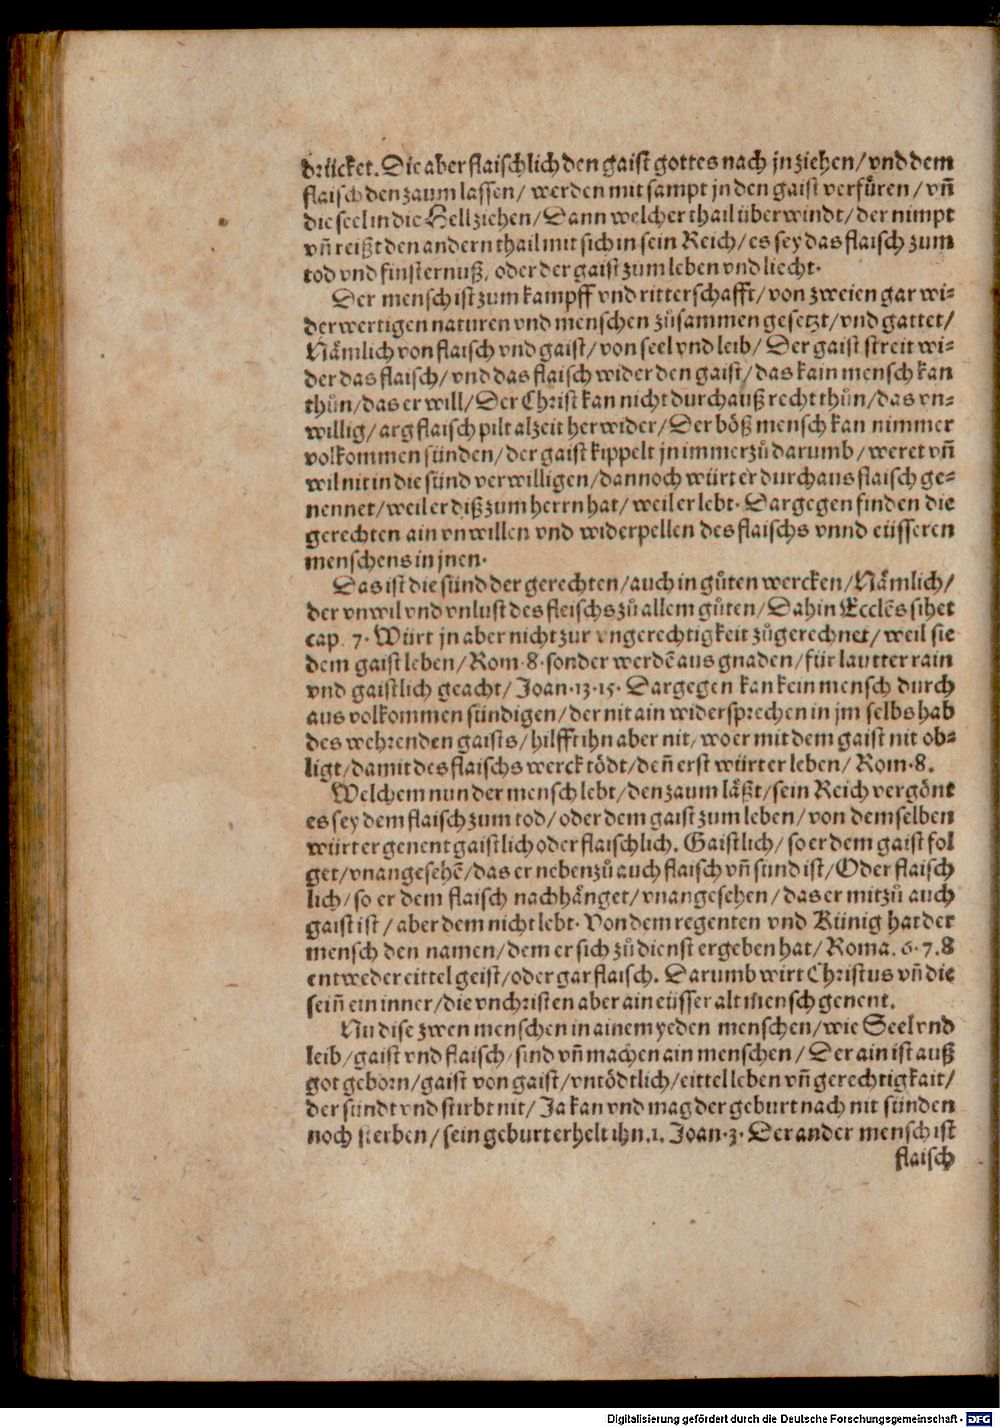 drücket. Die aber flaischlich den gaist gottes nach jn ziehen / vnd dem
flaisch den zaum lassen / werden mit sampt jn den gaist verfüren / vñ
die seel in die Hell ziehen / Dann welcher thail überwindt / der nimpt
vñ reißt den andern thail mit sich in sein Reich / es sey das flaisch zum
tod vnd finsternuß, oder der gaist zum leben vnd liecht.
Der mensch ist zum kampff vnd ritterschafft / von zweien gar wi⸗
derwertigen naturen vnd menschen zůsammen gesetzt / vnd gattet /
Nämlich von flaisch vnd gaist / von seel vnd leib / Der gaist streit wi⸗
der das flaisch / vnd das flaisch wider den gaist / das kain mensch kan
thůn / das er will / Der Christ kan nicht durchauß recht thůn / das vn⸗
willig / arg flaisch pilt alzeit herwider / Der böß mensch kan nimmer
volkommen sünden / der gaist kippelt jn immerzů darumb / weret vñ
wil nit in die sünd verwilligen / dannoch würt er durchaus flaisch ge⸗
nennet / weil er diß zum herrn hat / weil er lebt. Dargegen finden die
gerechten ain vnwillen vnd widerpellen des flaischs vnnd eüsseren
menschens in jnen.
Das ist die sünd der gerechten / auch in gůten wercken / Nämlich /
der vnwil vnd vnlust des fleischs zů allem gůten / Dahin Eccle͂s sihet
cap. 7. Würt jn aber nicht zur vngerechtigkeit zůgerechnet / weil sie
dem gaist leben / Rom. 8. sonder werde͂ aus gnaden / für lautter rain
vnd gaistlich geacht / Joan. 13. 15. Dargegen kan kein mensch durch
aus volkommen sündigen / der nit ain widersprechen in jm selbs hab
des wehrenden gaists / hilfft ihn aber nit / wo er mit dem gaist nit ob⸗
ligt / damit des flaischs werck tödt / deñ erst würt er leben / Rom. 8.
Welchem nun der mensch lebt / den zaum läßt / sein Reich vergönt
es sey dem flaisch zum tod / oder dem gaist zum leben / von demselben
würt er genent gaistlich oder flaischlich. Gaistlich / so er dem gaist fol
get / vnangesehe͂ / das er nebenzů auch flaisch vñ sünd ist / Oder flaisch
lich / so er dem flaisch nachhänget / vnangesehen / das er mitzů auch
gaist ist / aber dem nicht lebt. Von dem regenten vnd Künig hat der
mensch den namen / dem er sich zů dienst ergeben hat / Roma. 6. 7. 8
entweder eittel geist / oder gar flaisch. Darumb wirt Christus vñ die
seiñ ein inner / die vnchristen aber ain eüsser alt mensch genent.
Nu dise zwen menschen in ainem yeden menschen / wie Seel vnd
leib / gaist vnd flaisch / sind vñ machen ain menschen / Der ain ist auß
got geborn / gaist von gaist / vntödtlich / eittel leben vñ gerechtigkait /
der sündt vnd stirbt nit / Ja kan vnd mag der geburt nach nit sünden
noch sterben / sein geburt erhelt ihn. 1. Joan. 3. Der ander mensch ist
flaisch
Digitalisierung gefördert durch die Deutsche Forschungsgemeinschaft - DFG